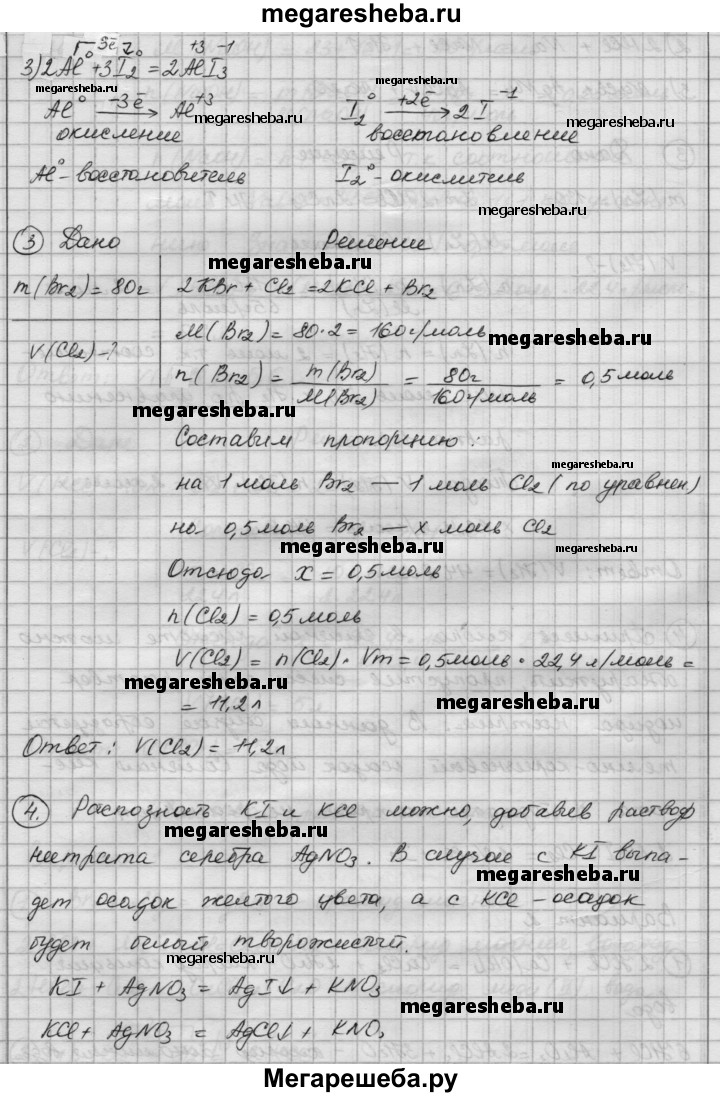 megaresheba.ru
3ē
0 0 +3 -1
3) 2Al + 3I₂ = 2AlI₃
megaresheba.ru
Al⁰ -3ē → Al⁺³ I₂⁰ +2ē → 2I⁻¹
megaresheba.ru
megaresheba.ru
окисление восстановление
Al⁰ - восстановитель I₂⁰ - окислитель
megaresheba.ru
3 Дано Решение
megaresheba.ru
m(Br₂) = 80г 2KBr + Cl₂ = 2KCl + Br₂
M(Br₂) = 80·2 = 160г/моль
megaresheba.ru
V(Cl₂) - ?
n(Br₂) = m(Br₂) / M(Br₂) = 80г / 160г/моль = 0,5 моль
megaresheba.ru
Составим пропорцию:
megaresheba.ru
на 1 моль Br₂ — 1 моль Cl₂ (по уравнен)
на 0,5 моль Br₂ — x моль Cl₂
megaresheba.ru
Отсюда x = 0,5 моль
n(Cl₂) = 0,5 моль
V(Cl₂) = n(Cl₂) · Vm = 0,5 моль · 22,4 л/моль =
megaresheba.ru
= 11,2 л
megaresheba.ru
Ответ: V(Cl₂) = 11,2 л
4. Распознать KI и KCl можно, добавив раствор
megaresheba.ru
нитрата серебра AgNO₃. В случае с KI выпа-
megaresheba.ru
дет осадок желтого цвета, а с KCl - осадок
будет белый творожистый.
megaresheba.ru
megaresheba.ru
KI + AgNO₃ = AgI↓ + KNO₃
megaresheba.ru
KCl + AgNO₃ = AgCl↓ + KNO₃
Мегарешеба.ру